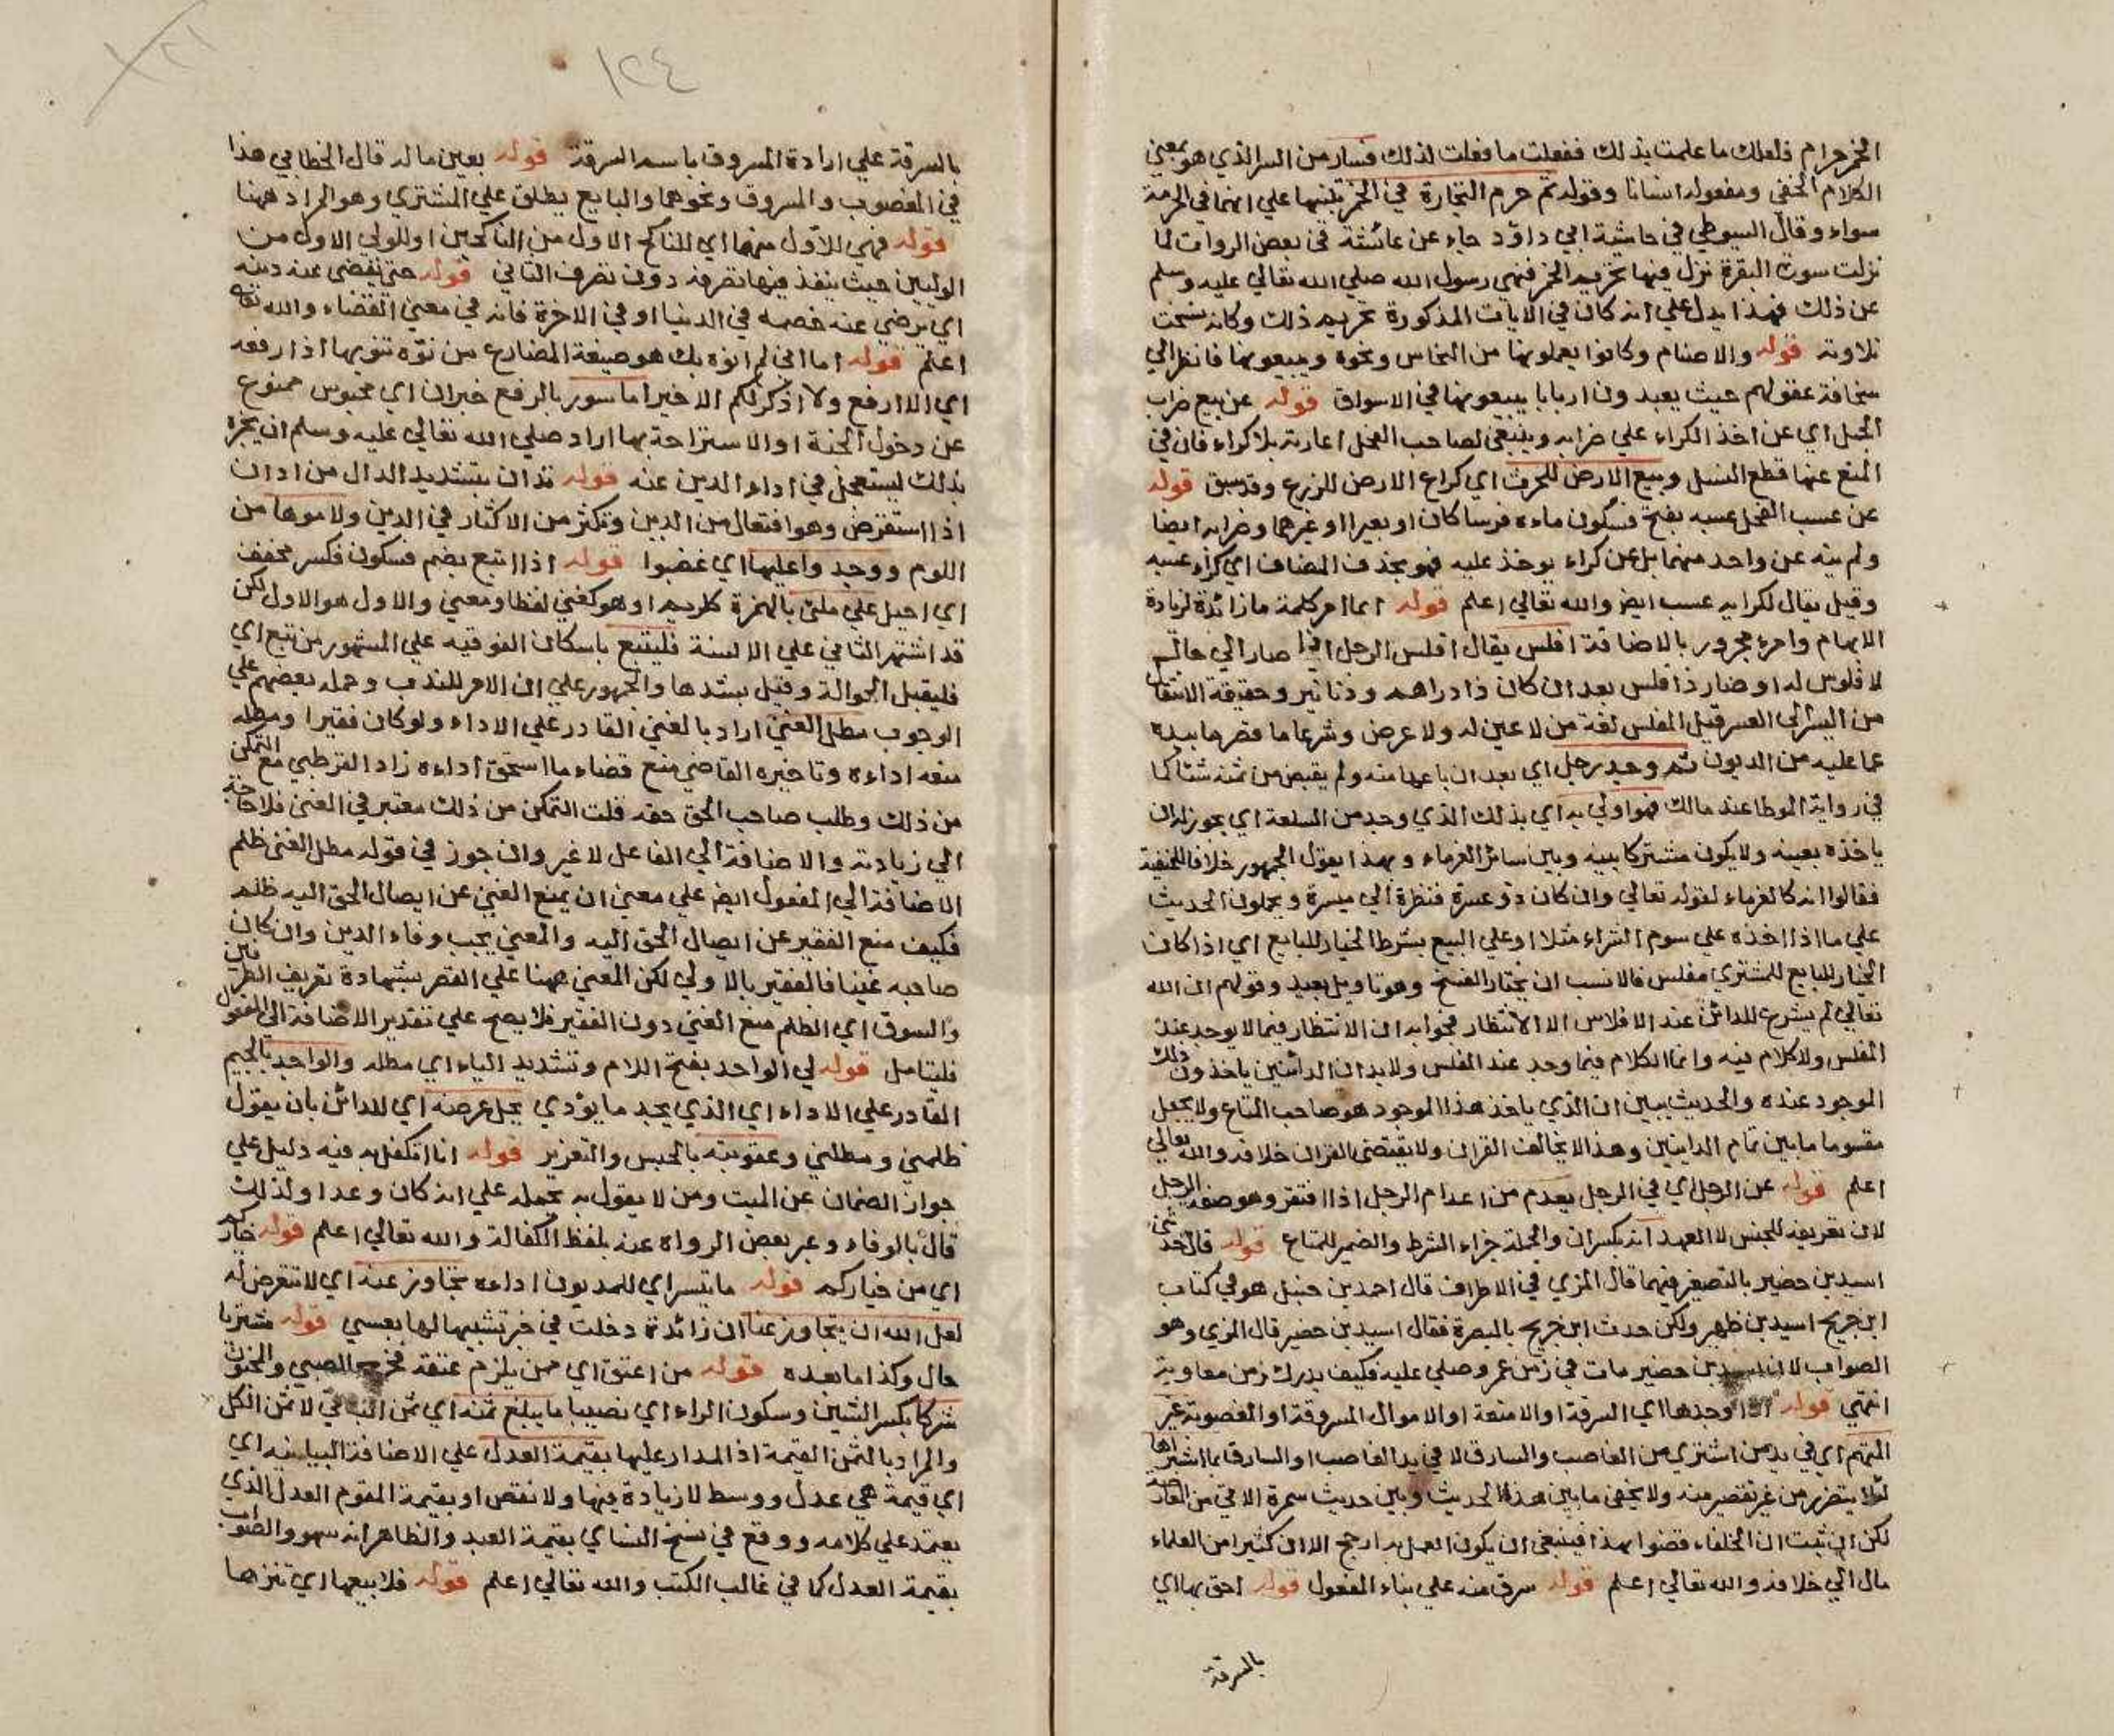 الخمر حرام فلعلك ما علمت بذلك ففعلت ما فعلت لذلك فسار من السر الذي هو بمعنى
الكلام الخفي ومفعوله انسانا وقوله ثم حرم التجارة في الخمر تنبيها علي انهما في الحرمة
سواء وقال السيوطي في حاشية ابي داؤد جاء عن عائشة في بعض الروات لما
نزلت سورة البقرة نزل فيها تحريم الخمر فنهى رسول الله صلي الله تعالي عليه وسلم
عن ذلك فهذا يدل علي انه كان في الايات المذكورة تحريم ذلك وكانه نسخت
تلاوته قوله والاصنام وكانوا يعملونها من النحاس ونحوه ويبيعونها فانظر الي
سخافة عقولهم حيث يعبدون اربابا يبيعونها في الاسواق قوله عن بيع ضراب
الجمل اي عن اخذ الكراء علي ضرابه وينبغي لصاحب الفحل اعارته بلا كراء فان في
المنع عنها قطع النسل وبيع الارض للحرث اي كراء الارض للزرع وقد سبق قوله
عن عسب الفحل عسبه بفتح فسكون ماءه فرسا كان او بعيرا او غيرهما وضرابه ايضا
ولم ينه عن واحد منهما بل عن كراء يوخذ عليه فهو بحذف المضاف اي كراء عسبه
وقيل يقال لكرايه عسب ايضا والله تعالي اعلم قوله ايما امر كلمة ما زائدة لزيادة
الابهام وامرء مجرور بالاضافة افلس يقال افلس الرجل اذا صار الي حالة
لا فلوس له او صار ذا فلس بعد ان كان ذا دراهم ودنانير وحقيقة الانتقال
من اليسر الي العسر قيل المفلس لغة من لا عين له ولا عرض وشرعا ما قصر ما بيده
عما عليه من الديون ثم وجد رجل اي بعد ان باعها منه ولم يقبض من ثمنه شئا كما
في رواية الموطا عند مالك فهو اولي به اي بذلك الذي وجد من السلعة اي يجوز له ان
ياخذه بعينه ولا يكون مشتركا بينه وبين سائر الغرماء وبهذا يقول الجمهور خلافا للحنفية
فقالوا انه كالغرماء لقوله تعالي وان كان ذو عسرة فنظرة الي ميسرة ويحملون الحديث
علي ما اذا اخذه علي سوم الشراء مثلا او علي البيع بشرط الخيار للبايع اي اذا كان
الخيار للبايع للمشتري مفلس فالانسب ان يختار الفسخ وهو تاويل بعيد وقولهم ان الله
تعالي لم يشرع للدائن عند الافلاس الا الانتظار فجوابه ان الانتظار فيما لا يوجد عند
المفلس ولا كلام فيه وانما الكلام فيما وجد عند المفلس ولا بد ان الدائنين ياخذون ذلك
الموجود عنده والحديث يبين ان الذي ياخذ هذا الموجود هو صاحب المتاع ولا يجعل
مقسوما ما بين تمام الداينين وهذا لا يخالف القران ولا يقتضي القران خلافه والله تعالي
اعلم قوله عن الرجل اي في الرجل يعدم من اعدام الرجل اذا افتقر وهو صفة الرجل
لان تعريفه للجنس لا العهد انه بكسر ان والجملة جزاء الشرط والضمير للمتاع قوله قال حدثني
اسيد بن حضير بالتصغير فيهما قال المزي في الاطراف قال احمد بن حنبل هو في كتاب
ابن جريج اسيد بن ظهير ولكن حدث ابن جريج بالبصرة فقال اسيد بن حضير قال المزي وهو
الصواب لان اسيد بن حضير مات في زمن عمر وصلي عليه فكيف يدرك زمن معاوية
انتهي قوله اذا وجدها اي السرقة او الامتعة او الاموال المسروقة او المغصوبة غير
المتهم اي في يد من اشتري من الغاصب والسارق لا في يد الغاصب او السارق بما اشتراها
لئلا يتضرر من غير تقصير منه ولا يخفي ما بين هذا الحديث وبين حديث سمرة الاتي من المعارضة
لكن ان ثبت ان الخلفاء قضوا بهذا فينبغي ان يكون العمل به ارجح الا ان كثيرا من العلماء
مال الي خلافه والله تعالي اعلم قوله سرق منه علي بناء المفعول قوله احق بها اي
بالسرقة
١٢٤
بالسرقة علي ارادة المسروق باسم السرقة قوله بعين ماله قال الخطابي هذا
في المغصوب والمسروق ونحوهما والبايع يطلق علي المشتري وهو المراد ههنا
قوله فهي للاول منهما اي للناكح الاول من الناكحين او للولي الاول من
الوليين حيث ينفذ فيها تصرفه دون تصرف الثاني قوله حتي يقضى عنه دينه
اي يرضي عنه خصمه في الدنيا او في الاخرة فانه في معني القضاء والله تعالى
اعلم قوله اما اني لم انوه بك هو صيغة المضارع من نوّه تنويها اذا رفعه
اي لا ارفع ولا اذكر لكم الا خيرا ماسور بالرفع خبر ان اي محبوس ممنوع
عن دخول الجنة او الاستراحة بها اراد صلي الله تعالي عليه وسلم ان يخبره
بذلك ليستعجل في اداء الدين عنه قوله تدان بتشديد الدال من ادان
اذا استقرض وهو افتعال من الدين وتكثر من الاكثار في الدين ولاموها من
اللوم ووجدوا عليها اي غضبوا قوله اذا اتبع بضم فسكون فكسر مخفف
اي احيل علي ملئ بالهمزة كلريم او هو كغني لفظا ومعني والاول هو الاول لكن
قد اشتهر الثاني علي الالسنة فليتبع باسكان الفوقيه علي المشهور من تبع اي
فليقبل الحوالة وقيل بشدها والجمهور علي ان الامر للندب وحمله بعضهم علي
الوجوب مطل الغني اراد بالغني القادر علي الاداء ولو كان فقيرا ومطله
منعه اداءه وتاخيره القاضي منع قضاء ما استحق اداءه زاد القرطبي مع التمكن
من ذلك وطلب صاحب الحق حقه قلت التمكن من ذلك معتبر في الغني فلا حاجة
الي زيادته والاضافة الي الفاعل لا غير وان جوز في قوله مطل الغني ظلم
الاضافة الي المفعول ايضا علي معني ان يمنع الغني عن ايصال الحق اليه ظلم
فكيف منع الفقير عن ايصال الحق اليه والمعني يجب وفاء الدين وان كان
صاحبه غنيا فالفقير بالاولي لكن المعني ههنا علي القصر بشهادة تعريف الطرفين
والسوق اي الظلم منع الغني دون الفقير فلا يصح علي تقدير الاضافة الي المفعول
فليتامل قوله لي الواجد بفتح اللام وتشديد الياء اي مطله والواجد بالجيم
القادر علي الاداء اي الذي يجد ما يؤدي يحل عرضه اي للدائن بان يقول
ظلمني ومطلني وعقوبته بالحبس والتعزير قوله انا اتكفل به فيه دليل علي
جواز الضمان عن الميت ومن لا يقول به يحمله علي انه كان وعدا ولذلك
قال بالوفاء وعبر بعض الرواة عنه بلفظ الكفالة والله تعالي اعلم قوله خياركم
اي من خياركم قوله ما تيسر اي للمديون اداءه تجاوز عنه اي لا تتعرض له
لعل الله ان يتجاوز عنا ان زائدة دخلت في خبر تشبيها لها بعسي قوله مشتريا
حال وكذا ما بعده قوله من اعتق اي ممن يلزم عتقه فخرج الصبي والمجنون
شركا بكسر الشين وسكون الراء اي نصيبا ما يبلغ ثمنه اي ثمن الباقي لا ثمن الكل
والمراد بالثمن القيمة اذ المدار عليها بقيمة العدل علي الاضافة البيانيه اي
اي قيمة هي عدل ووسط لا زيادة فيها ولا نقص او بقيمة المقوم العدل الذي
يعتمد علي كلامه ووقع في نسخ النساي بقيمة العبد والظاهر انه سهو والصواب
بقيمة العدل كما في غالب الكتب والله تعالي اعلم قوله فلا يبيعها اي تنزها